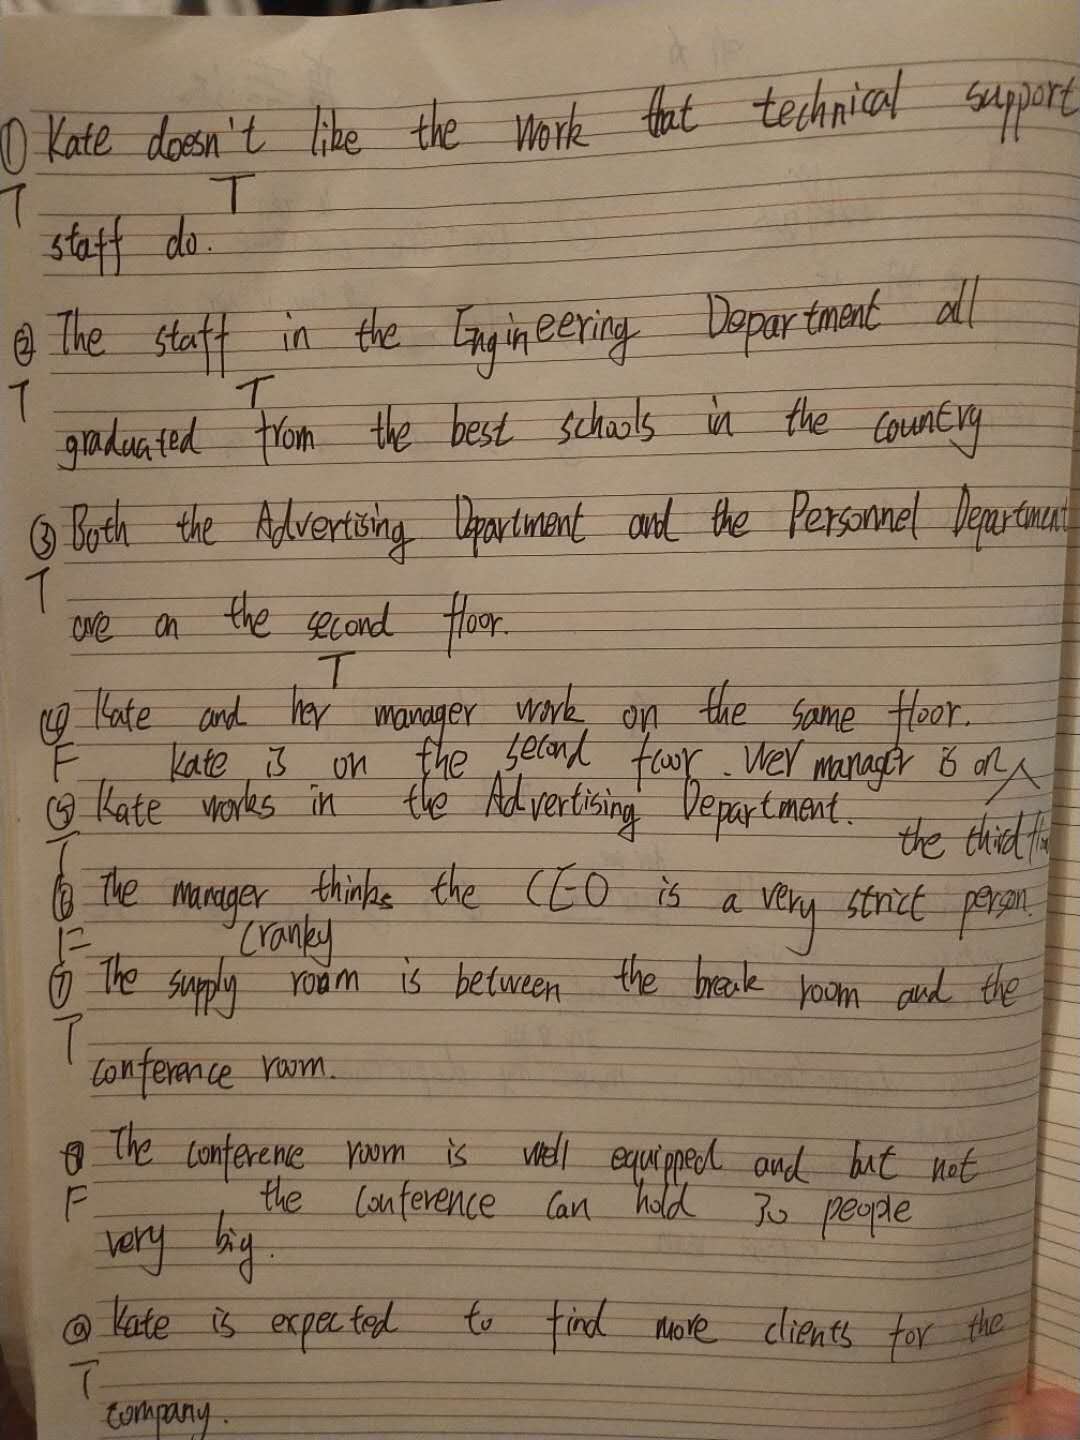 ① Kate doesn't like the work that technical support
T T
staff do.
② The staff in the Engineering Department all
T T
graduated from the best schools in the country
③ Both the Advertising Department and the Personnel Department
T
are on the second floor.
T
④ Kate and her manager work on the same floor.
F Kate is on the second floor. Her manager is on
⑤ Kate works in the Advertising Department.
T the third
⑥ The manager thinks the CEO is a very strict person.
F cranky
⑦ The supply room is between the break room and the
T
conference room.
⑧ The conference room is well equipped and but not
F the conference can hold 30 people
very big.
⑨ Kate is expected to find more clients for the
T
company.